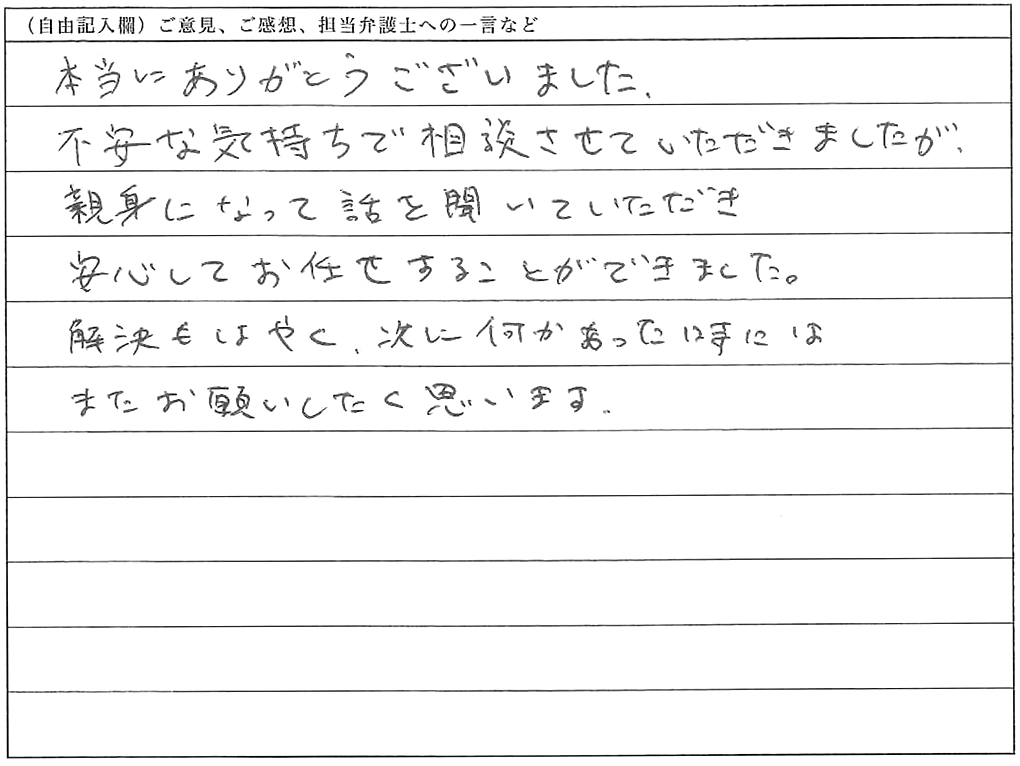 （自由記入欄）ご意見、ご感想、担当弁護士への一言など
本当にありがとうございました.
不安な気持ちで相談させていただきましたが、
親身になって話を聞いていただき
安心してお任せすることができました。
解決もはやく、次に何かあったときには
またお願いしたく思います.